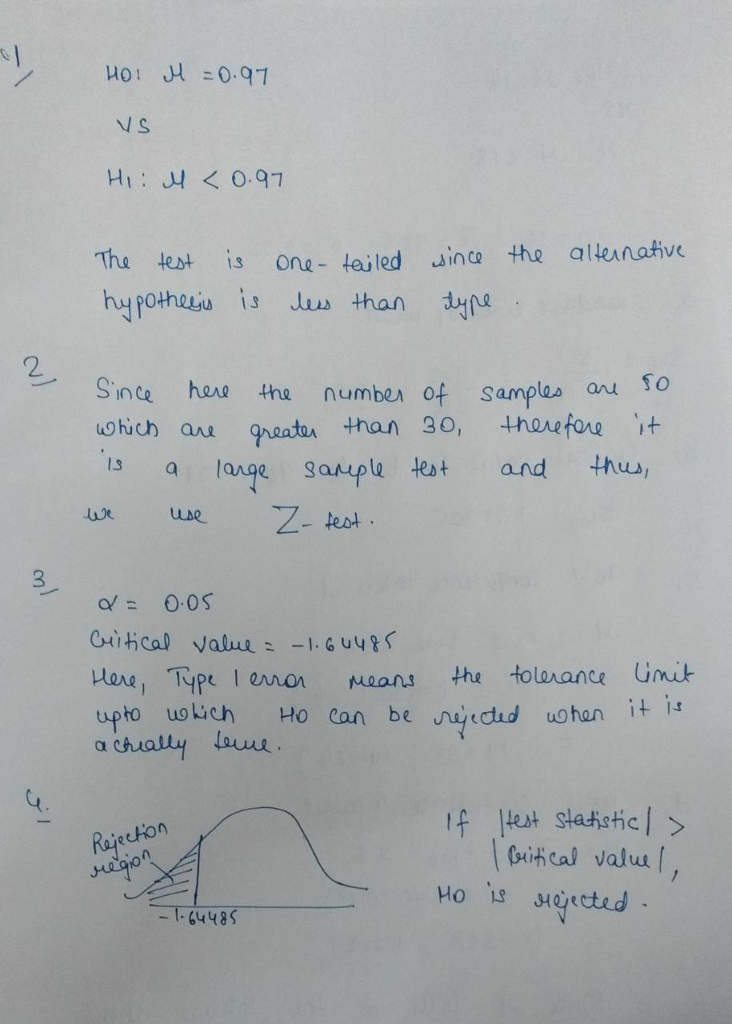 1
H0: μ = 0.97
VS
H1: μ < 0.97
The test is one-tailed since the alternative
hypothesis is less than type.
2
Since here the number of samples are 50
which are greater than 30, therefore it
is a large sample test and thus,
we use Z-test.
3
α = 0.05
Critical value = -1.64485
Here, Type 1 error means the tolerance limit
upto which H0 can be rejected when it is
actually true.
4.
Rejection
region
-1.64485
If |test statistic| >
|Critical value|,
H0 is rejected.